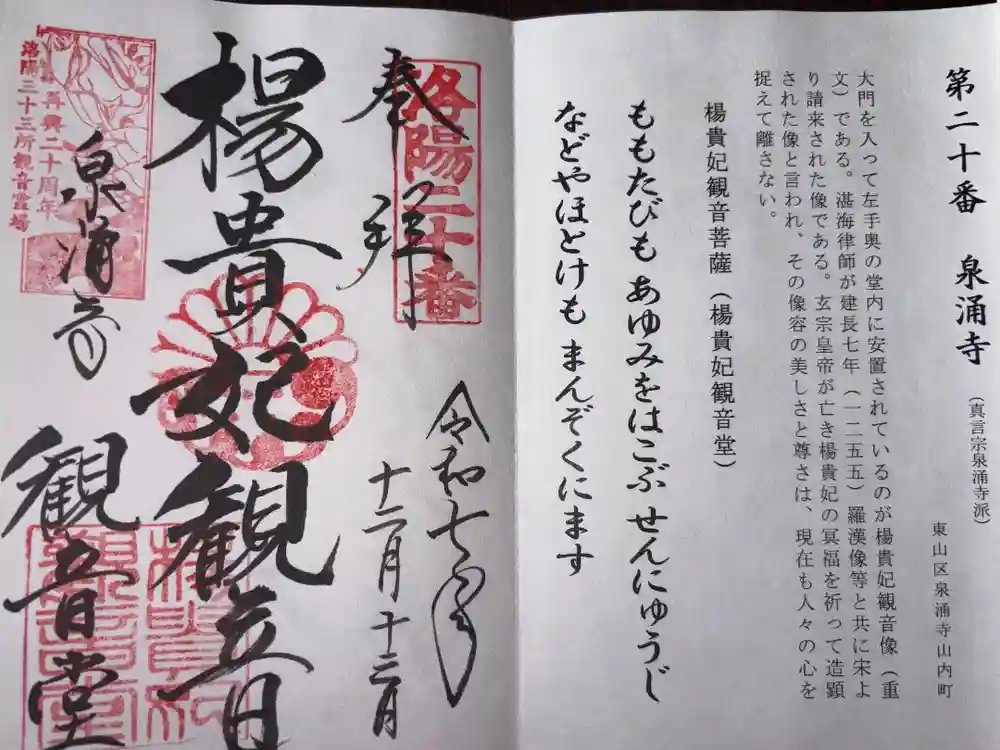 第二十番　泉涌寺（真言宗泉涌寺派）
東山区泉涌寺山内町
大門を入って左手奥の堂内に安置されているのが楊貴妃観音像（重
文）である。湛海律師が建長七年（一二五五）羅漢像等と共に宋よ
り請来された像である。玄宗皇帝が亡き楊貴妃の冥福を祈って造顕
された像と言われ、その像容の美しさと尊さは、現在も人々の心を
捉えて離さない。
楊貴妃観音菩薩（楊貴妃観音堂）
ももたびも あゆみをはこぶ せんにゅうじ
などやほとけも まんぞくにます
洛陽二十番
奉拝
令和七年
十二月十二日
楊貴妃観音
観音堂
泉涌寺
再興二十周年
洛陽三十三所観音霊場